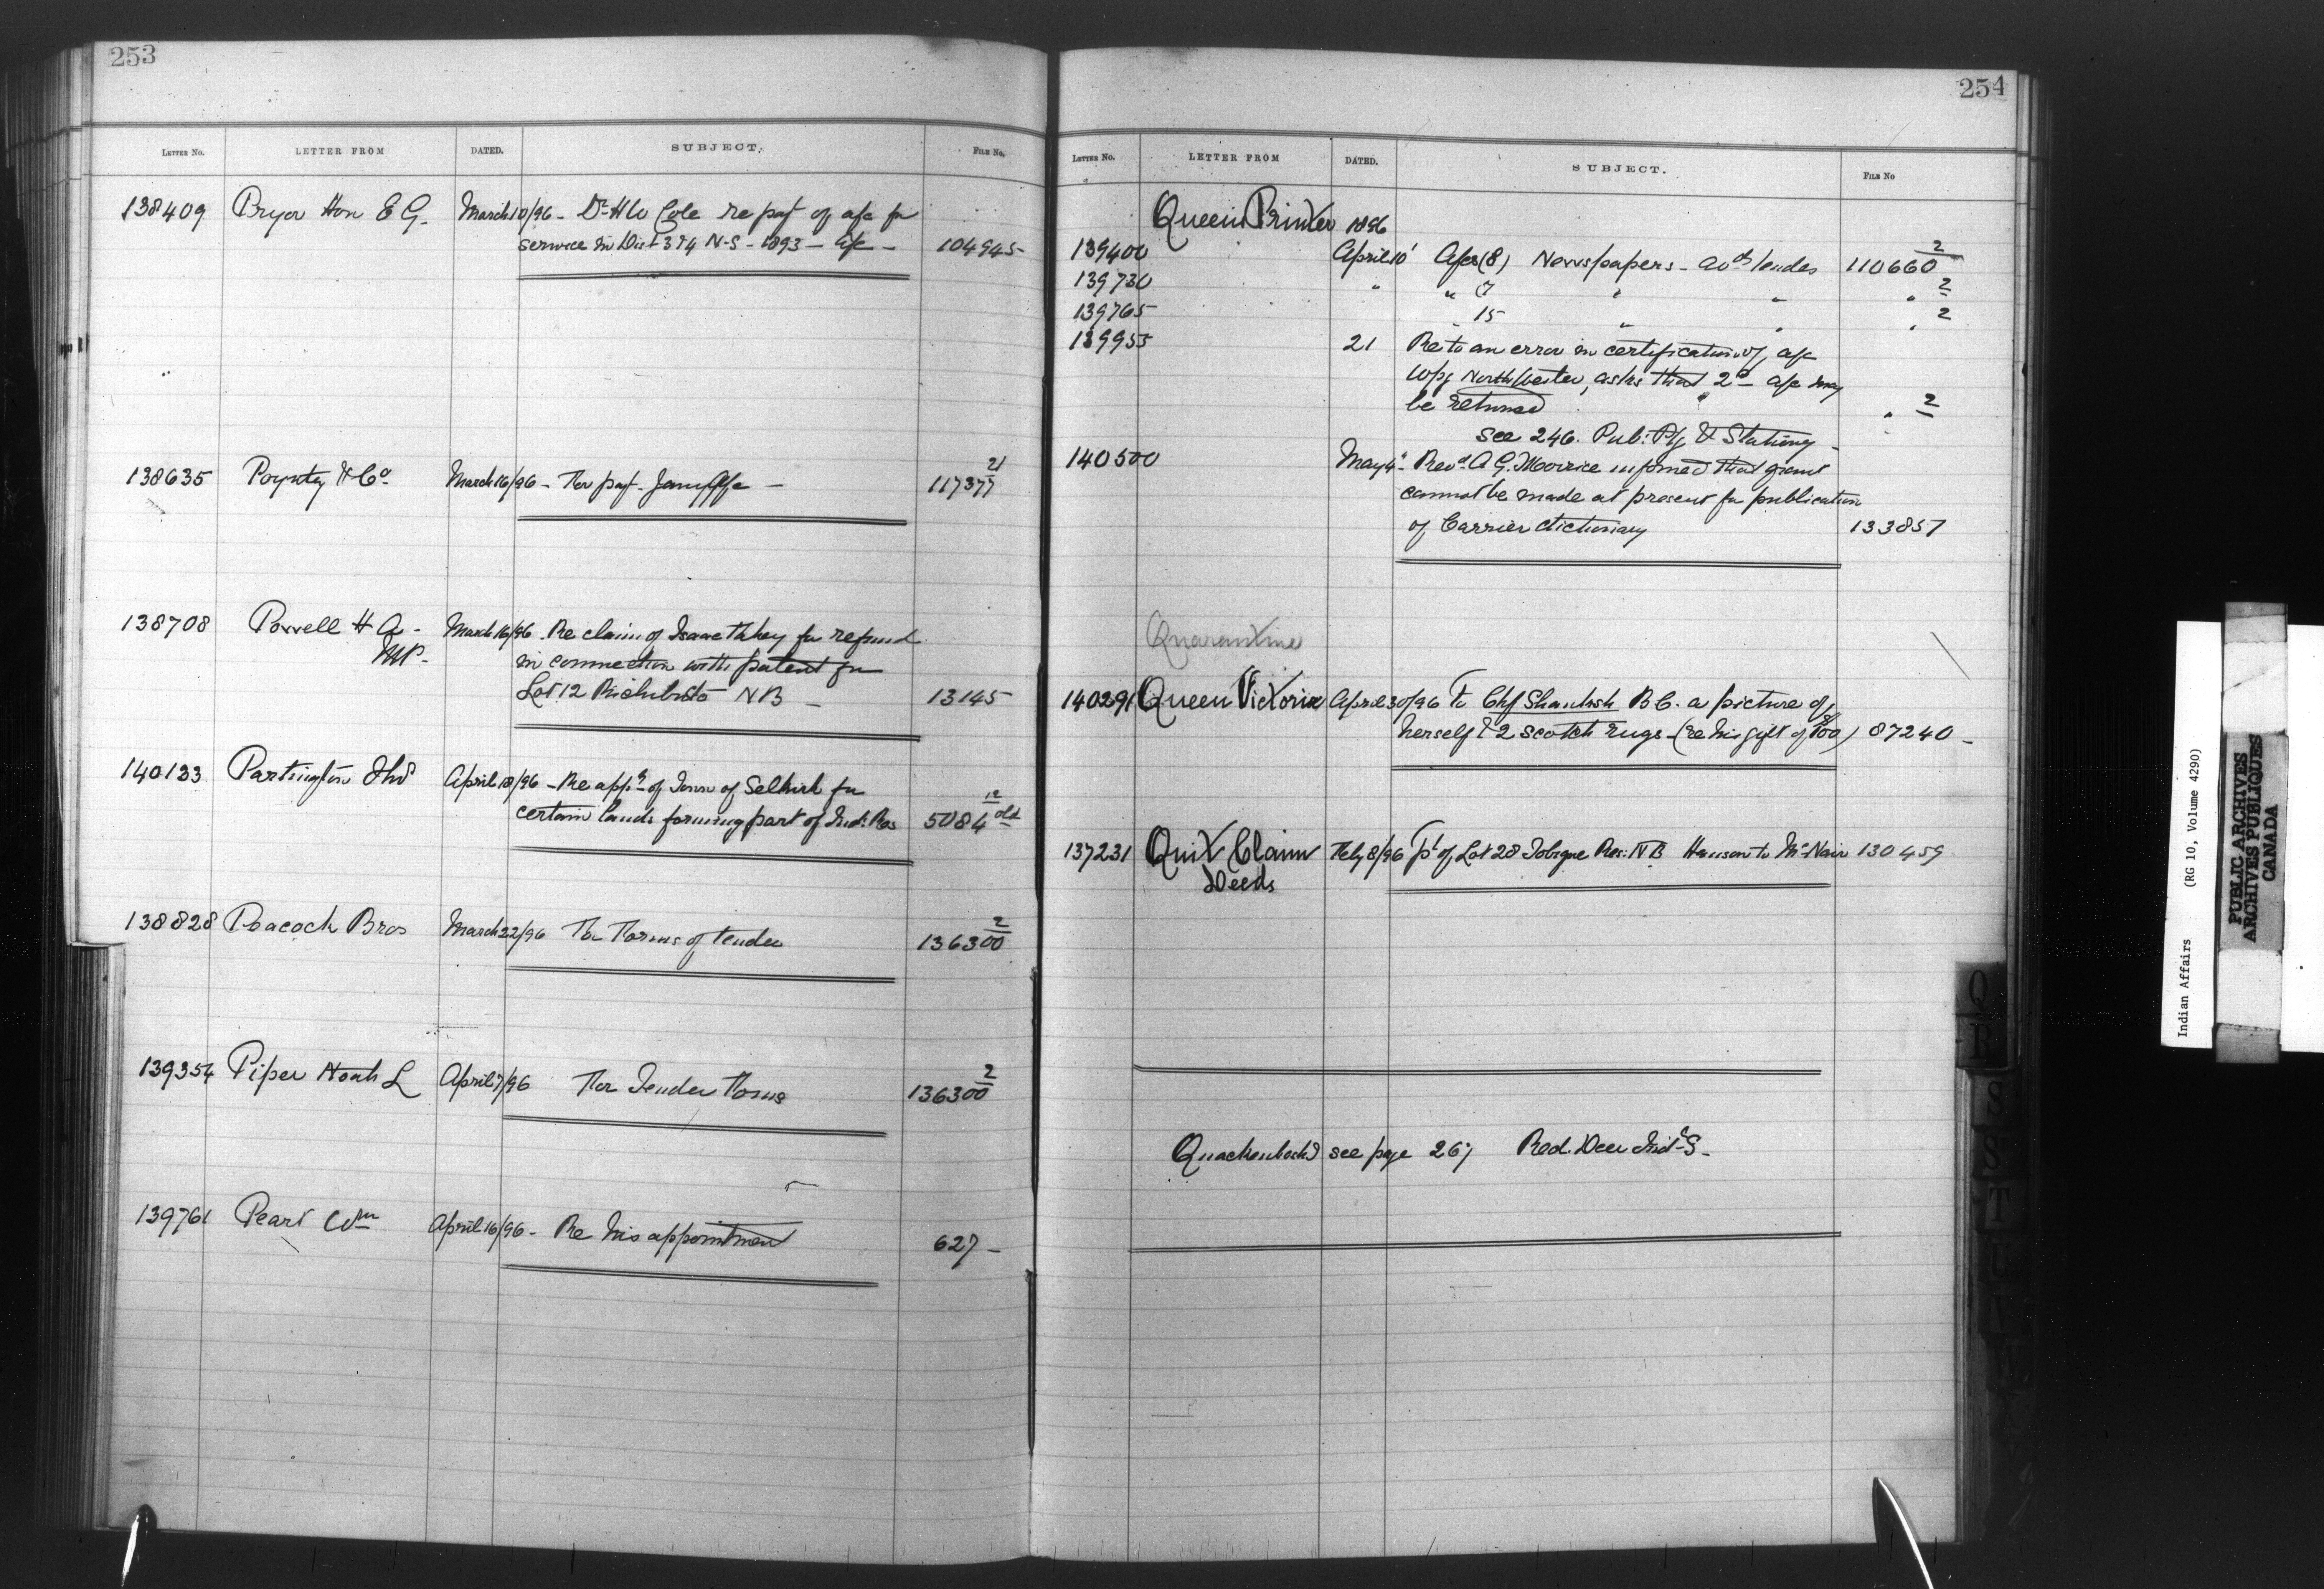 253
LETTER No. LETTER FROM DATED. SUBJECT. FILE No.
138409 Pryor Hon E G. March 10/96 - Dr H W Cole re payt of a/c for
service in Dist 3 & 4 N-S - 1893 - a/c - 104945
138635 Poyntz & Co March 16/96 - For payt. Jany a/c - 117377 21
138708 Powell H A - March 16/96. Re claim of Isaac for refund
MP. in connection with patent for
Lot 12 Richibucto NB - 13145
140133 Partington Thos April 18/96 - Re appn of Town of Selkirk for
certain lands forming part of Ind. Res 5084 12 old
138828 Peacock Bros March 22/96 For Forms of tender 136300 2
139354 Piper Noah L April 7/96 For Tender Forms 136300 2
139761 Peart Wm April 16/96 - Re his appointment 627 -
254
LETTER No. LETTER FROM DATED. SUBJECT. FILE No
Queen Printer 1896
139400 April 10 a/cs (8) Newspapers - advg tender 110660 2
139730 " " 7 " " " 2
139765 " 15 " " " 2
139955 21 Re to an error in certification of a/c
Wpg North Wester, asks that 2d a/c may
be returned " 2
See 246. Pub. Ptg & Stationy -
140500 May 4 - Revd A G. Morrice informed that grant
cannot be made at present for publication
of Carrier dictionary 133857
Quarantine
140291 Queen Victoria April 30/96 To Chf B.C. a picture of
herself & 2 Scotch rugs - (re his gift of $100) 87240 -
137231 Quit Claim Feby 8/96 Pt of Lot 28 Tobique Res. NB Hanson to McNair 130459
Deeds
see page 267 Red Deer Indl S.
Q
R
S
S
T
U
Indian Affairs (RG 10, Volume 4290)
PUBLIC ARCHIVES
ARCHIVES PUBLIQUES
CANADA